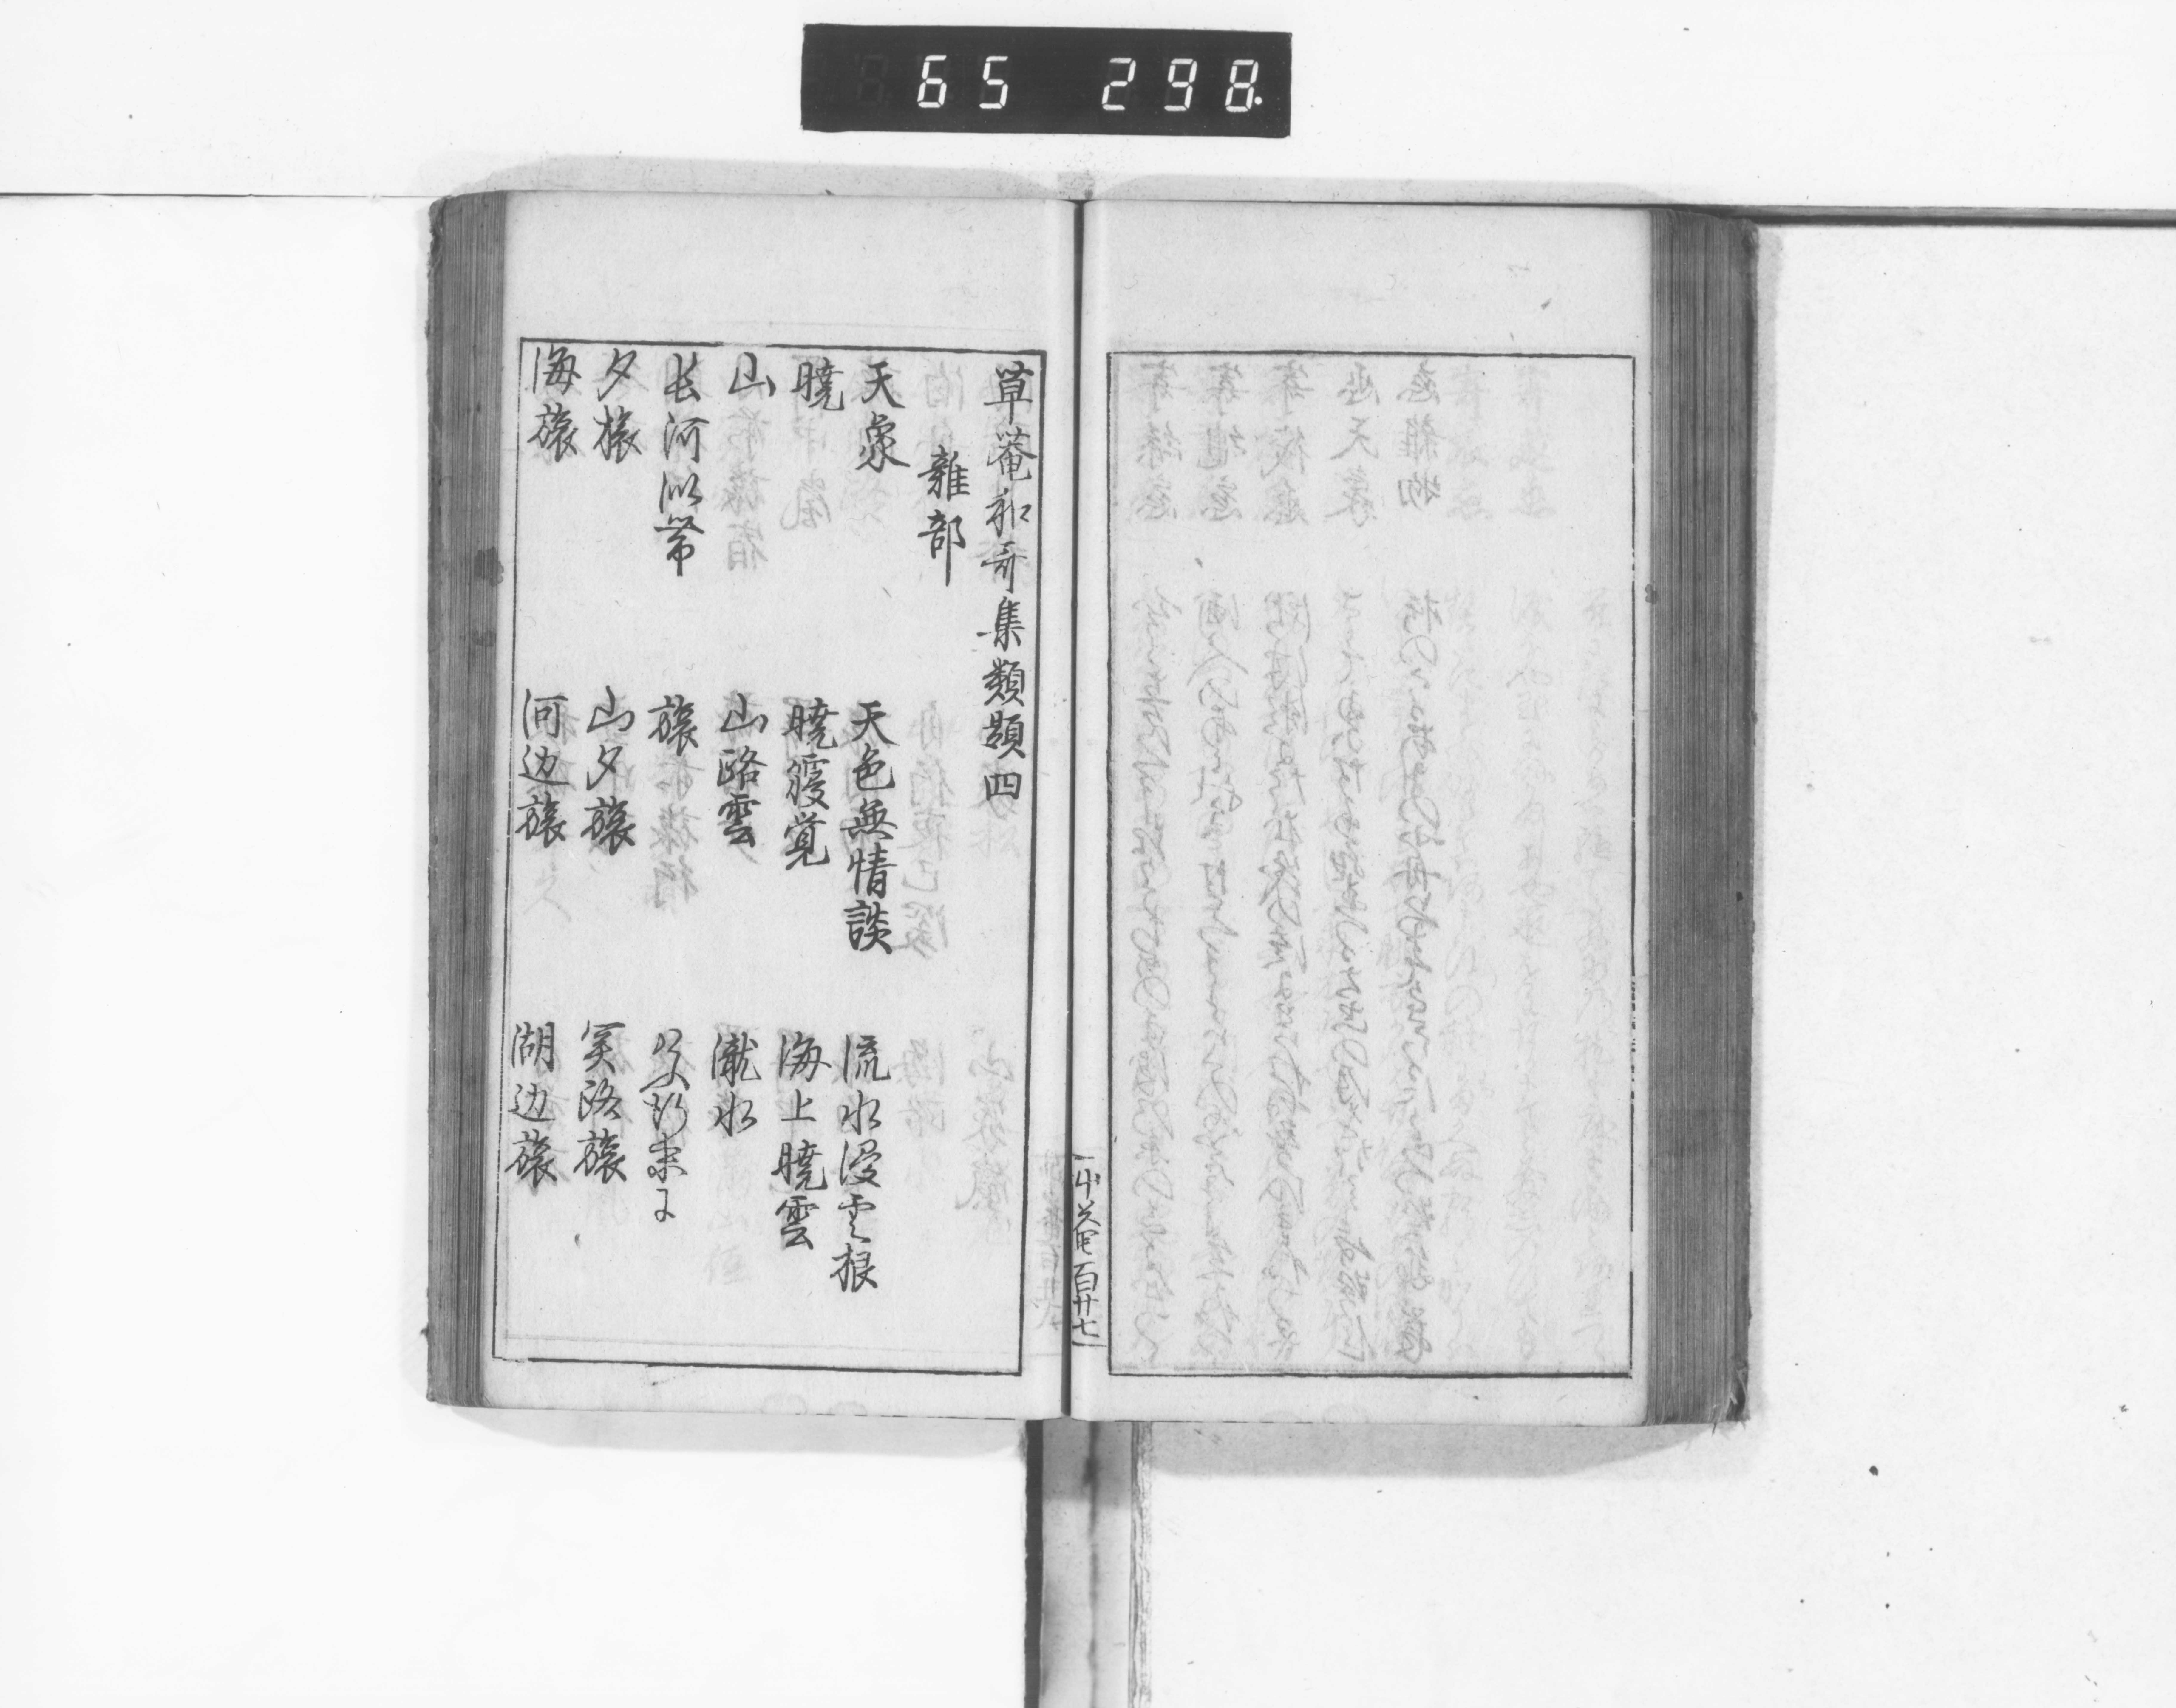 65 298.
百廿七
草菴和哥集類題四
雑部
天象 天色無情談 流水浸雲根
曉 曉寝覚 海上曉雲
山 山路雲 瀧水
長河似帯 旅
夕旅 山夕旅 関路旅
海旅 河辺旅 湖辺旅